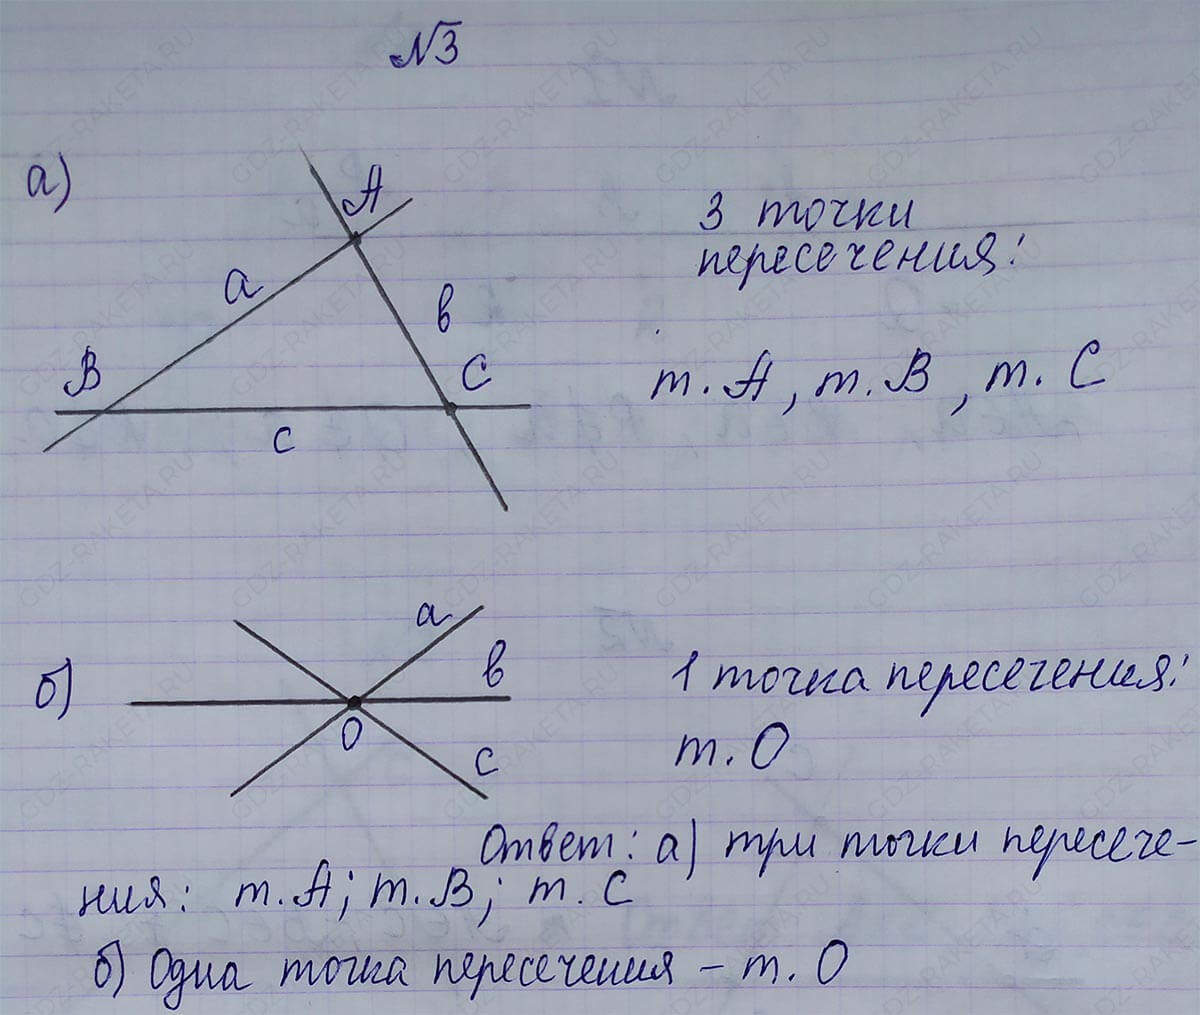 №3
а)
A
a
3 точки
пересечения:
в
B
C
т. A, т. B, т. C
c
б)
a
в
1 точка пересечения:
O
c
т. O
Ответ: а) три точки пересече-
ния: т. A; т. B; т. C
б) Одна точка пересечения – т. O
GDZ-RAKETA.RU